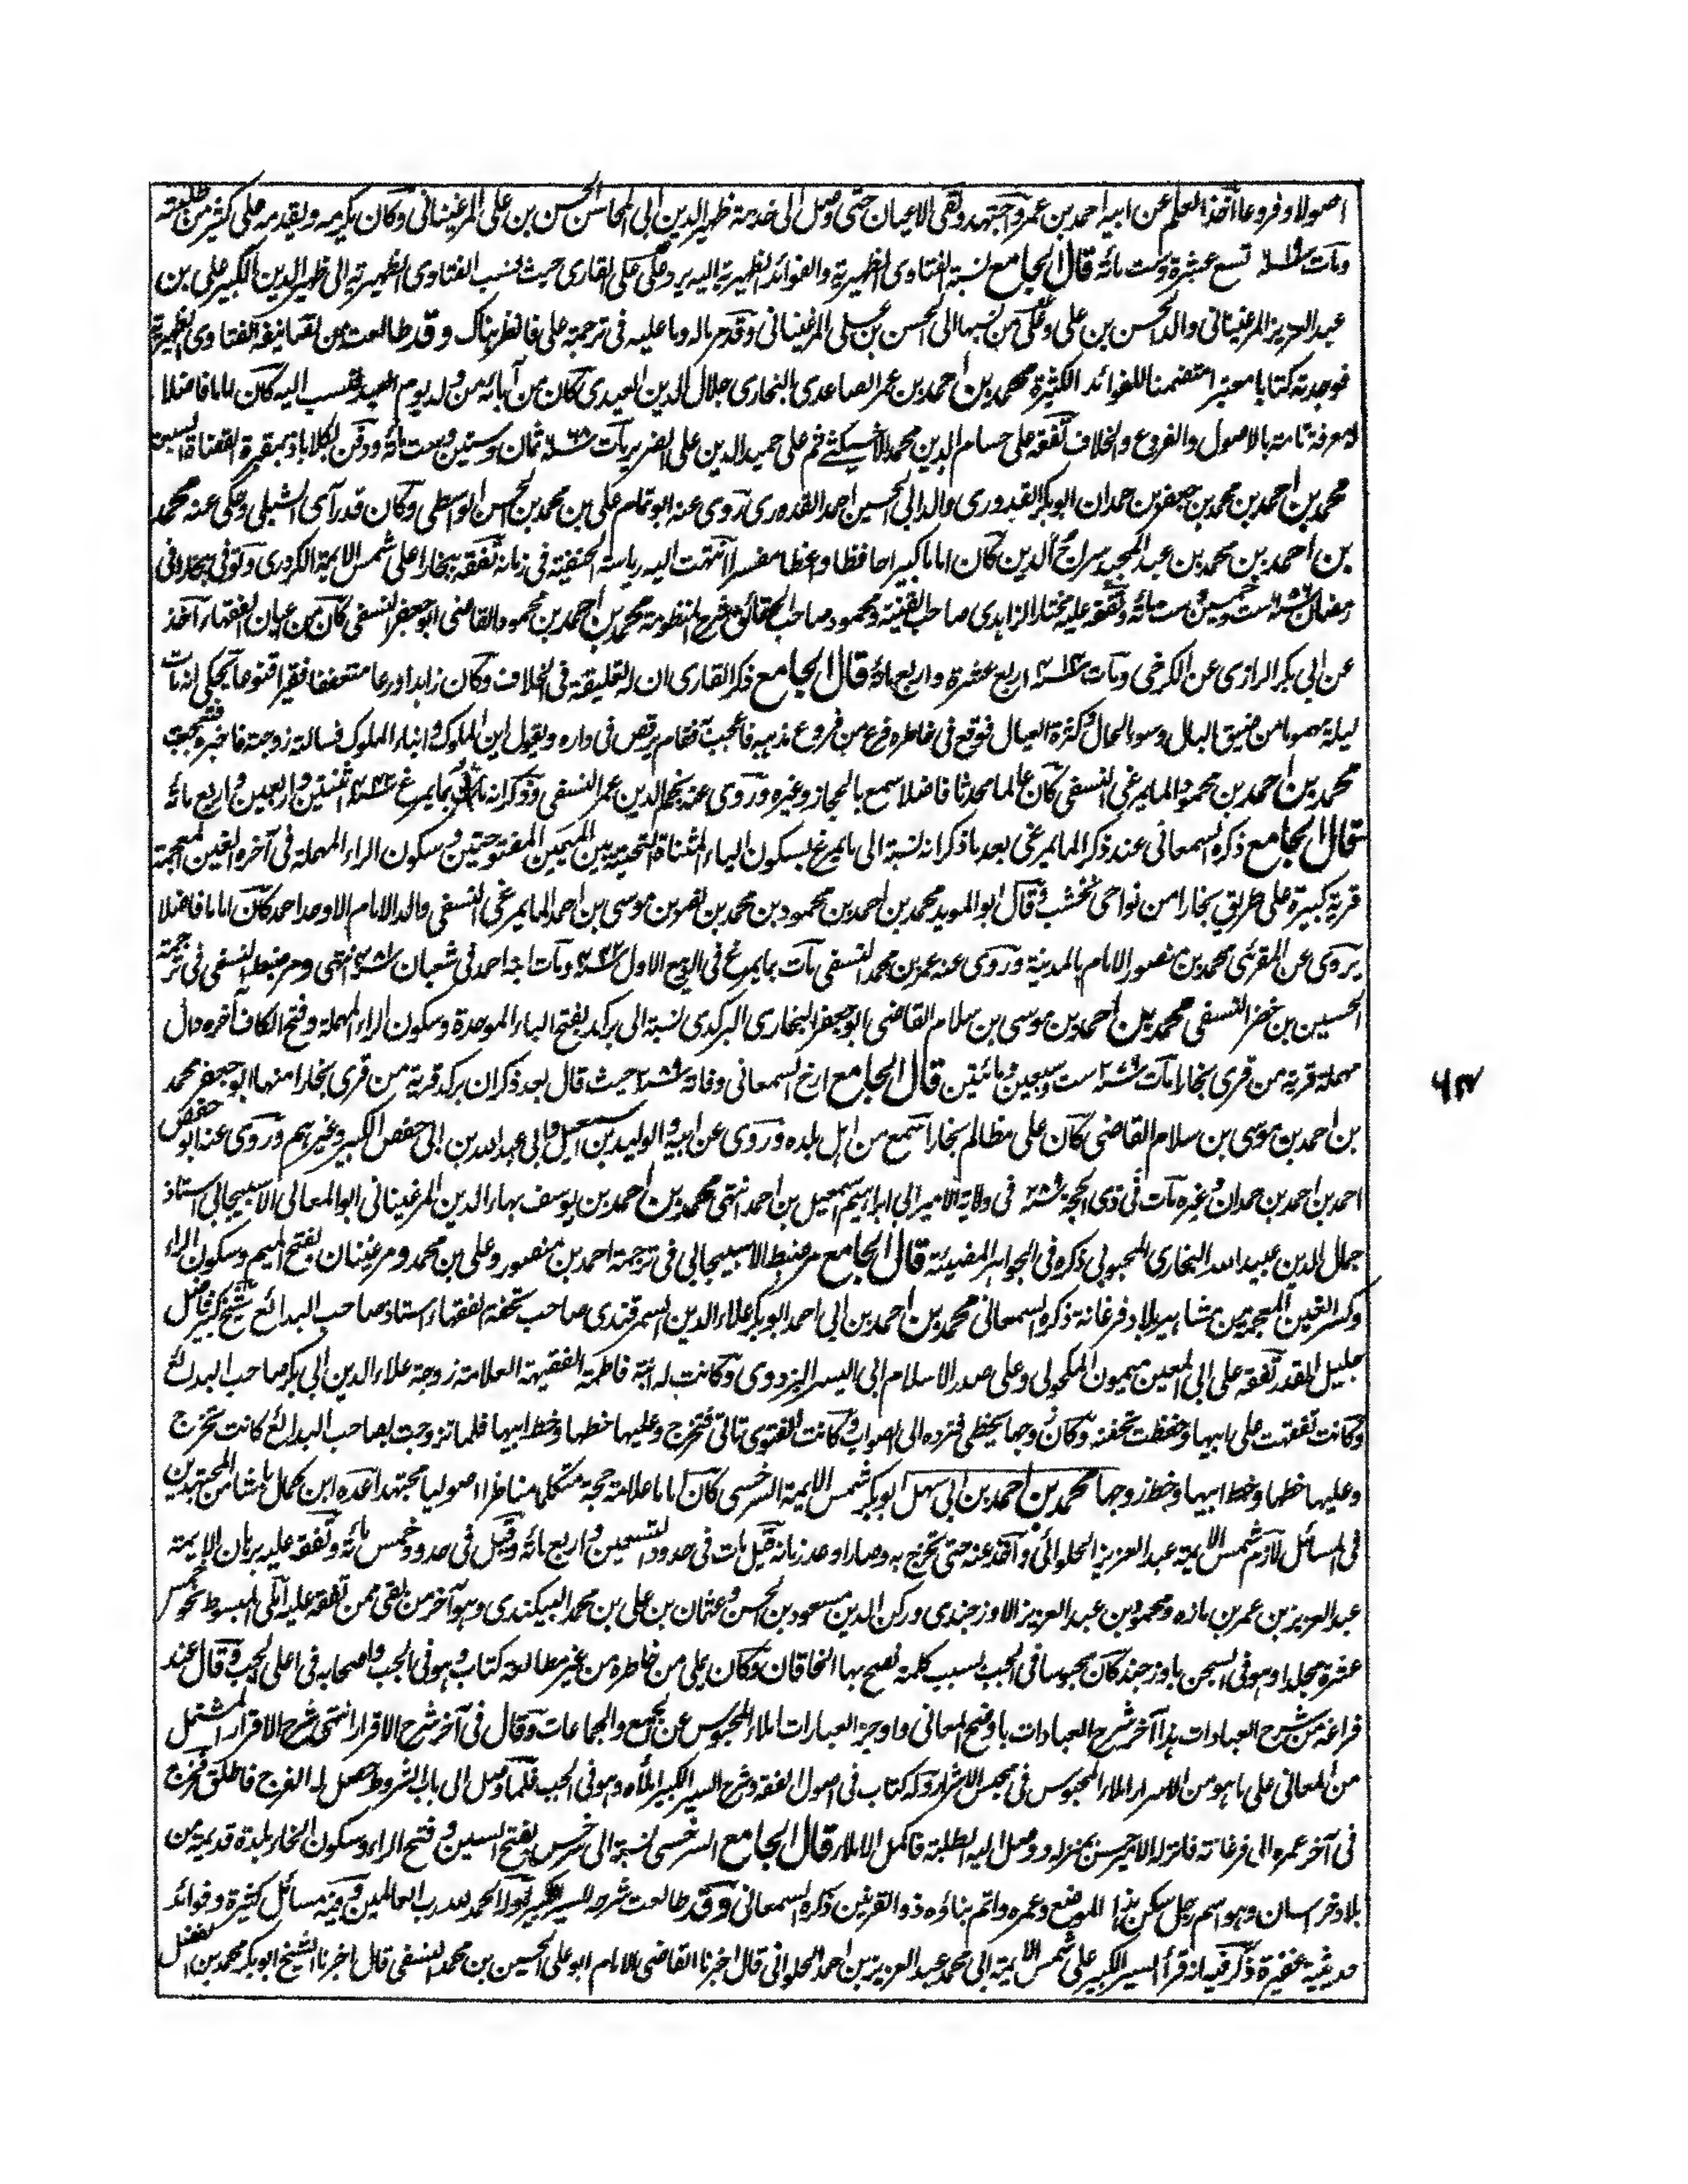 اصولا وفروعا اخذ العلم عن ابيه احمد بن عمر واجتهد ولقى الاعيان حتى وصل الى خدمة ظهير الدين ابى المحاسن الحسن بن على المرغينانى وكان يكرمه ويقدمه على كثير من طلبته
ومات سنة ٦١٩ تسع عشرة وست مائة قال الجامع نسبة الفتاوى الظهيرية والفوائد الظهيرية اليه يرد على على القارى حيث نسب الفتاوى الظهيرية الى ظهير الدين الكبير على بن
عبد العزيز المرغينانى والد الحسن بن على وعلى من نسبها الى الحسن بن على المرغينانى وقد مر ماله وما عليه فى ترجمة على فانظر هناك وقد طالعت من تصانيفه الفتاوى الظهيرية
فوجدته كتابا معتبرا متضمنا للفوائد الكثيرة محمد بن احمد بن عمر الصاعدى البخارى جلال الدين العيدى كان من آبائه من ولد يوم العيد فنسب اليه كان اماما فاضلا
له معرفة تامة بالاصول والفروع والخلاف تفقه على حسام الدين محمد الاخسيكثى ثم على حميد الدين على الضرير مات سنة ٦٦٨ ثمان وستين وست مائة ودفن بكلاباذ بمقبرة القضاة السبعة
محمد بن احمد بن محمد بن جعفر بن حمدان ابو بكر القدورى والد ابى الحسين احمد القدورى روى عنه ابو تمام على بن محمد بن الحسن الواسطى وكان قد رآى الشبلى وحكى عنه محمد
بن احمد بن محمد بن عبد المجيد سراج الدين كان اماما كبيرا حافظا واعظا مفسرا انتهت اليه رياسة الحنفية فى زمانه تفقه ببخارا على شمس الايمة الكردرى وتوفى ببخارا فى
رمضان سنة ٦٥٦ ست وخمسين وست مائة وتفقه عليه مختار الزاهدى صاحب القنية ومحمود صاحب الحقائق شرح المنظومة محمد بن احمد بن محمود القاضى ابو جعفر النسفى كان من اعيان الفقهاء اخذ
عن ابى بكر الرازى عن الكرخى ومات سنة ٤١٤ اربع عشرة واربع مائة قال الجامع ذكر القارى ان له تعليقة فى الخلاف وكان زاهدا ورعا متعففا فقيرا قنوعا يحكى انه بات
ليلة مهموما من ضيق البال وسوء الحال وكثرة العيال فوقع فى خاطره فرع من فروع مذهبه فاعجب به فقام يرقص فى داره ويقول اين الملوك وابناء الملوك فسالته زوجته فاخبر فتعجبت
محمد بن احمد بن محمود المايمرغى النسفى كان عالما محدثا فاضلا سمع بالحجاز وغيره وروى عنه نجم الدين عمر النسفى وذكر انه مات بمايمرغ سنة ٤٤٢ اثنتين واربعين واربع مائة
قال الجامع ذكره السمعانى عند ذكر المايمرغى بعد ما ذكر انه نسبة الى مايمرغ بسكون الياء المثناة التحتية بين الميمين المفتوحتين وسكون الراء المهملة فى آخره الغين المعجمة
قرية كبيرة على طريق بخارا من نواحى نخشب وقال ابو المويد محمد بن احمد بن محمود بن محمد بن نصر بن موسى بن احمد المايمرغى النسفى والد الامام الاوحد احمد كان اماما فاضلا
يروى عن المقرئى محمد بن منصور الامام بالمدينة وروى عنه عمر بن محمد النسفى مات بمايمرغ فى الربيع الاول ومات ابنه احمد فى شعبان انتهى ومر ضبط النسفى فى ترجمة
الحسين بن خضر النسفى محمد بن احمد بن موسى بن سلام القاضى ابو جعفر البخارى البركدى نسبة الى بركد بفتح الباء الموحدة وسكون الراء المهملة وفتح الكاف آخره دال
مهملة قرية من قرى بخارا مات ست وسبعين ومائتين قال الجامع ارخ السمعانى وفاته سنة ٢٨٩ حيث قال بعد ذكر ان بركد قرية من قرى بخارا منها ابو جعفر محمد
بن احمد بن موسى بن سلام القاضى كان على مظالم بخارا سمع من اهل بلده وروى عن ابيه والوليد بن اسمعيل وابى عبد الله بن ابى حفص الكبير وغيرهم وروى عنه ابو حفص
احمد بن احمد بن حمدان وغيره مات فى ذى الحجة سنة ٢٨٩ فى ولاية الامير ابى ابراهيم اسمعيل بن احمد انتهى محمد بن احمد بن يوسف بهاء الدين المرغينانى ابو المعالى الاسبيجابى استاذ
جمال الدين عبيد الله البخارى المحبوبى ذكره فى الجواهر المضيئة قال الجامع مر ضبط الاسبيجابى فى ترجمة احمد بن منصور وعلى بن محمد ومرغينان بفتح الميم وسكون الراء
وكسر الغين المعجمة من مشاهير بلاد فرغانة ذكره السمعانى محمد بن احمد بن ابى احمد ابو بكر علاء الدين السمرقندى صاحب تحفة الفقهاء استاذ صاحب البدائع شيخ كبير فاضل
جليل القدر تفقه على ابى المعين ميمون المكحولى وعلى صدر الاسلام ابى اليسر البزدوى وكانت له ابنة فاطمة الفقيهة العلامة زوجة علاء الدين ابى بكر صاحب البدائع
وكانت تفقهت على ابيها وحفظت تحفته وكان زوجها يخطى فترده الى الصواب وكانت الفتوى تاتى فتخرج وعليها خطها وخط ابيها فلما تزوجت بصاحب البدائع كانت تخرج
وعليها خطها وخط ابيها وخط زوجها محمد بن احمد بن ابى سهل ابو بكر شمس الايمة السرخسى كان اماما علامة حجة متكلما مناظرا اصوليا مجتهدا عده ابن كمال باشا من المجتهدين
فى المسائل لازم شمس الايمة عبد العزيز الحلوائى واخذ عنه حتى تخرج به وصار اوحد زمانه قيل مات فى حدود التسعين واربع مائة وقيل فى حدود خمس مائة وتفقه عليه برهان الايمة
عبد العزيز بن عمر بن مازه ومحمود بن عبد العزيز الاوزجندى وركن الدين مسعود بن الحسن وعثمان بن على بن محمد البيكندى وهو آخر من بقى ممن تفقه عليه املى المبسوط نحو خمس
عشرة مجلدا وهو فى السجن باوزجند كان محبوسا فى الجب بسبب كلمة نصح بها الخاقان وكان يملى من خاطره من غير مطالعة كتاب وهو فى الجب واصحابه فى اعلى الجب وقال عند
فراغه من شرح العبادات هذا آخر شرح العبادات باوضح المعانى واوجز العبارات املاء المحبوس عن الجمع والجماعات وقال فى آخر شرح الاقرار انتهى شرح الاقرار المشتمل
من المعانى على ما هو من الاسرار املاء المحبوس فى محبس الاشرار وله كتاب فى اصول الفقه وشرح السير الكبير املاه وهو فى الجب فلما وصل الى باب الشروط حصل له الفرج فاطلق فخرج
فى آخر عمره الى فرغانة فانزله الامير حسن بمنزله ووصل اليه الطلبة فاكمل الاملاء قال الجامع السرخسى نسبة الى سرخس بفتح السين وفتح الراء وسكون الخاء بلدة قديمة من
بلاد خراسان وهو اسم رجل سكن هذا الموضع وعمره واتم بناؤه ذو القرنين ذكره السمعانى وقد طالعت شرح السير الكبير اوله الحمد لله رب العالمين وفيه مسائل كثيرة وفوائد
حديثية غفيرة ذكر فيه انه قرأ السير الكبير على شمس الايمة ابى محمد عبد العزيز بن احمد الحلوانى قال اخبرنا القاضى الامام ابو على الحسين بن محمد النسفى قال اخبرنا الشيخ ابو بكر محمد بن الفضل